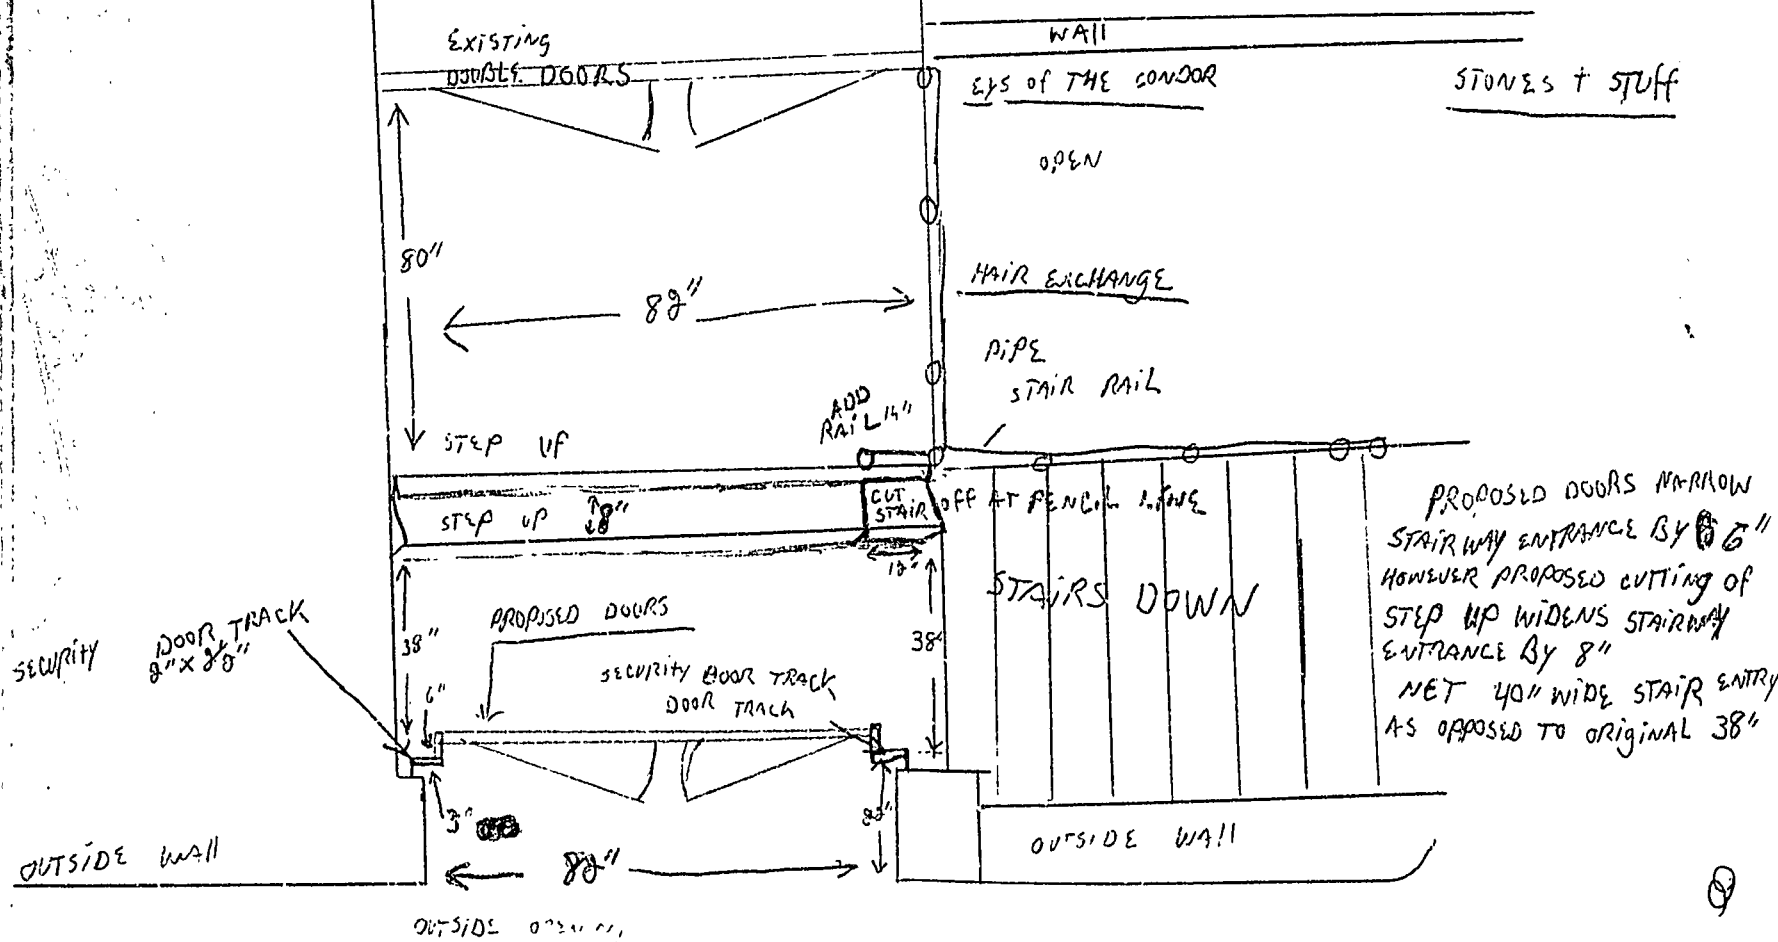 EXISTING
DOUBLE DOORS
WAll
EYS of THE CONDOR
STONES + STUff
OPEN
80"
82"
HAIR EXCHANGE
PIPE
STAIR RAIL
ADD
RAIL 14"
STEP UP
STEP UP 8"
CUT
STAIR OFF AT PENCIL LINE
12"
PROPOSED DOORS NARROW
STAIRWAY ENTRANCE BY 6"
HOWEVER PROPOSED CUTTING of
STEP UP WIDENS STAIRWAY
ENTRANCE BY 8"
NET 40" WIDE STAIR ENTRY
AS OPPOSED TO ORIGINAL 38"
STAIRS DOWN
38"
38"
PROPOSED DOORS
SECURITY DOOR TRACK
DOOR TRACK
SECURITY DOOR TRACK
6"
3"
82"
OUTSIDE WAll
OUTSIDE WAll
OUTSIDE